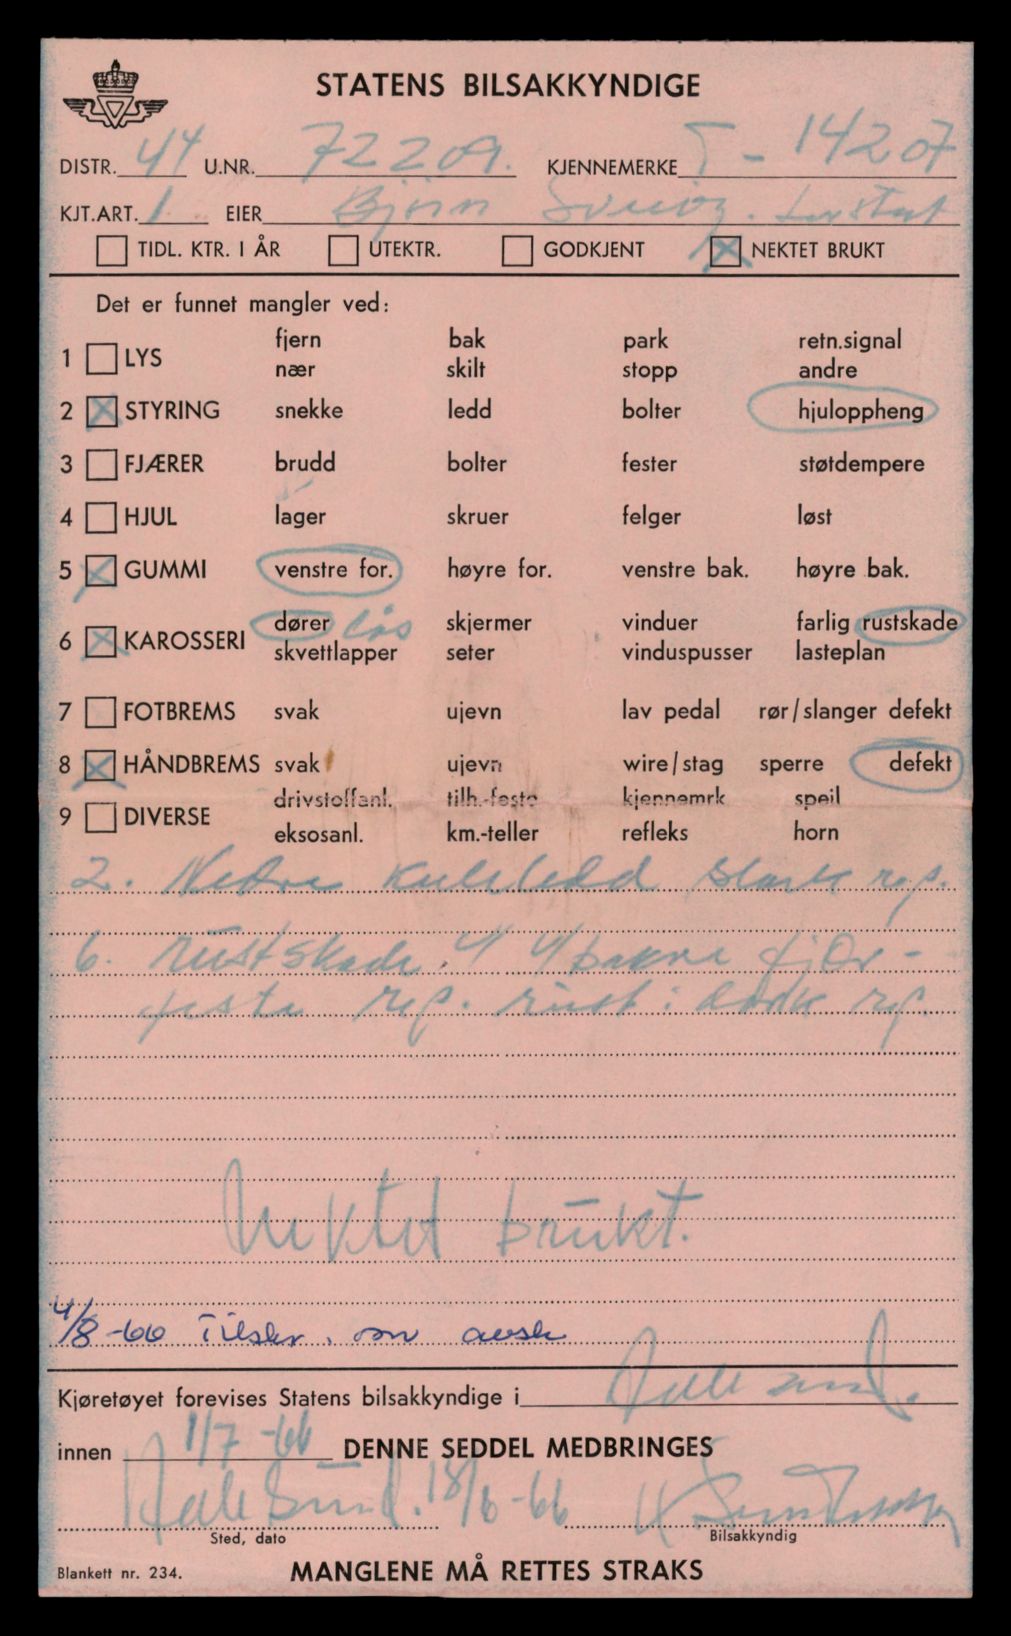 STATENS BILSAKKYNDIGE
DISTR. 44 U.NR. 72209. KJENNEMERKE T - 14207
KJT.ART. 1 EIER Bjørn
TIDL. KTR. I ÅR UTEKTR. GODKJENT NEKTET BRUKT
Det er funnet mangler ved:
fjern bak park retn.signal
1 LYS
nær skilt stopp andre
2 STYRING snekke ledd bolter hjuloppheng
3 FJÆRER brudd bolter fester støtdempere
4 HJUL lager skruer felger løst
5 GUMMI venstre for. høyre for. venstre bak. høyre bak.
dører lås skjermer vinduer farlig rustskade
6 KAROSSERI
skvettlapper seter vinduspusser lasteplan
7 FOTBREMS svak ujevn lav pedal rør/slanger defekt
8 HÅNDBREMS svak ujevn wire/stag sperre defekt
drivstoffanl. tilh.-feste kjennemrk speil
9 DIVERSE
eksosanl. km.-teller refleks horn
2. Nedre kuleledd slark rep.
6. rustskade. v bakre fjær-
feste rep. rust i dørk rep.
Nektet brukt.
4/8-66 Tilskr. om avsk
Kjøretøyet forevises Statens bilsakkyndige i Aalesund.
innen 1/7-66 DENNE SEDDEL MEDBRINGES
Aalesund. 18/6-66
Sted, dato Bilsakkyndig
Blankett nr. 234. MANGLENE MÅ RETTES STRAKS